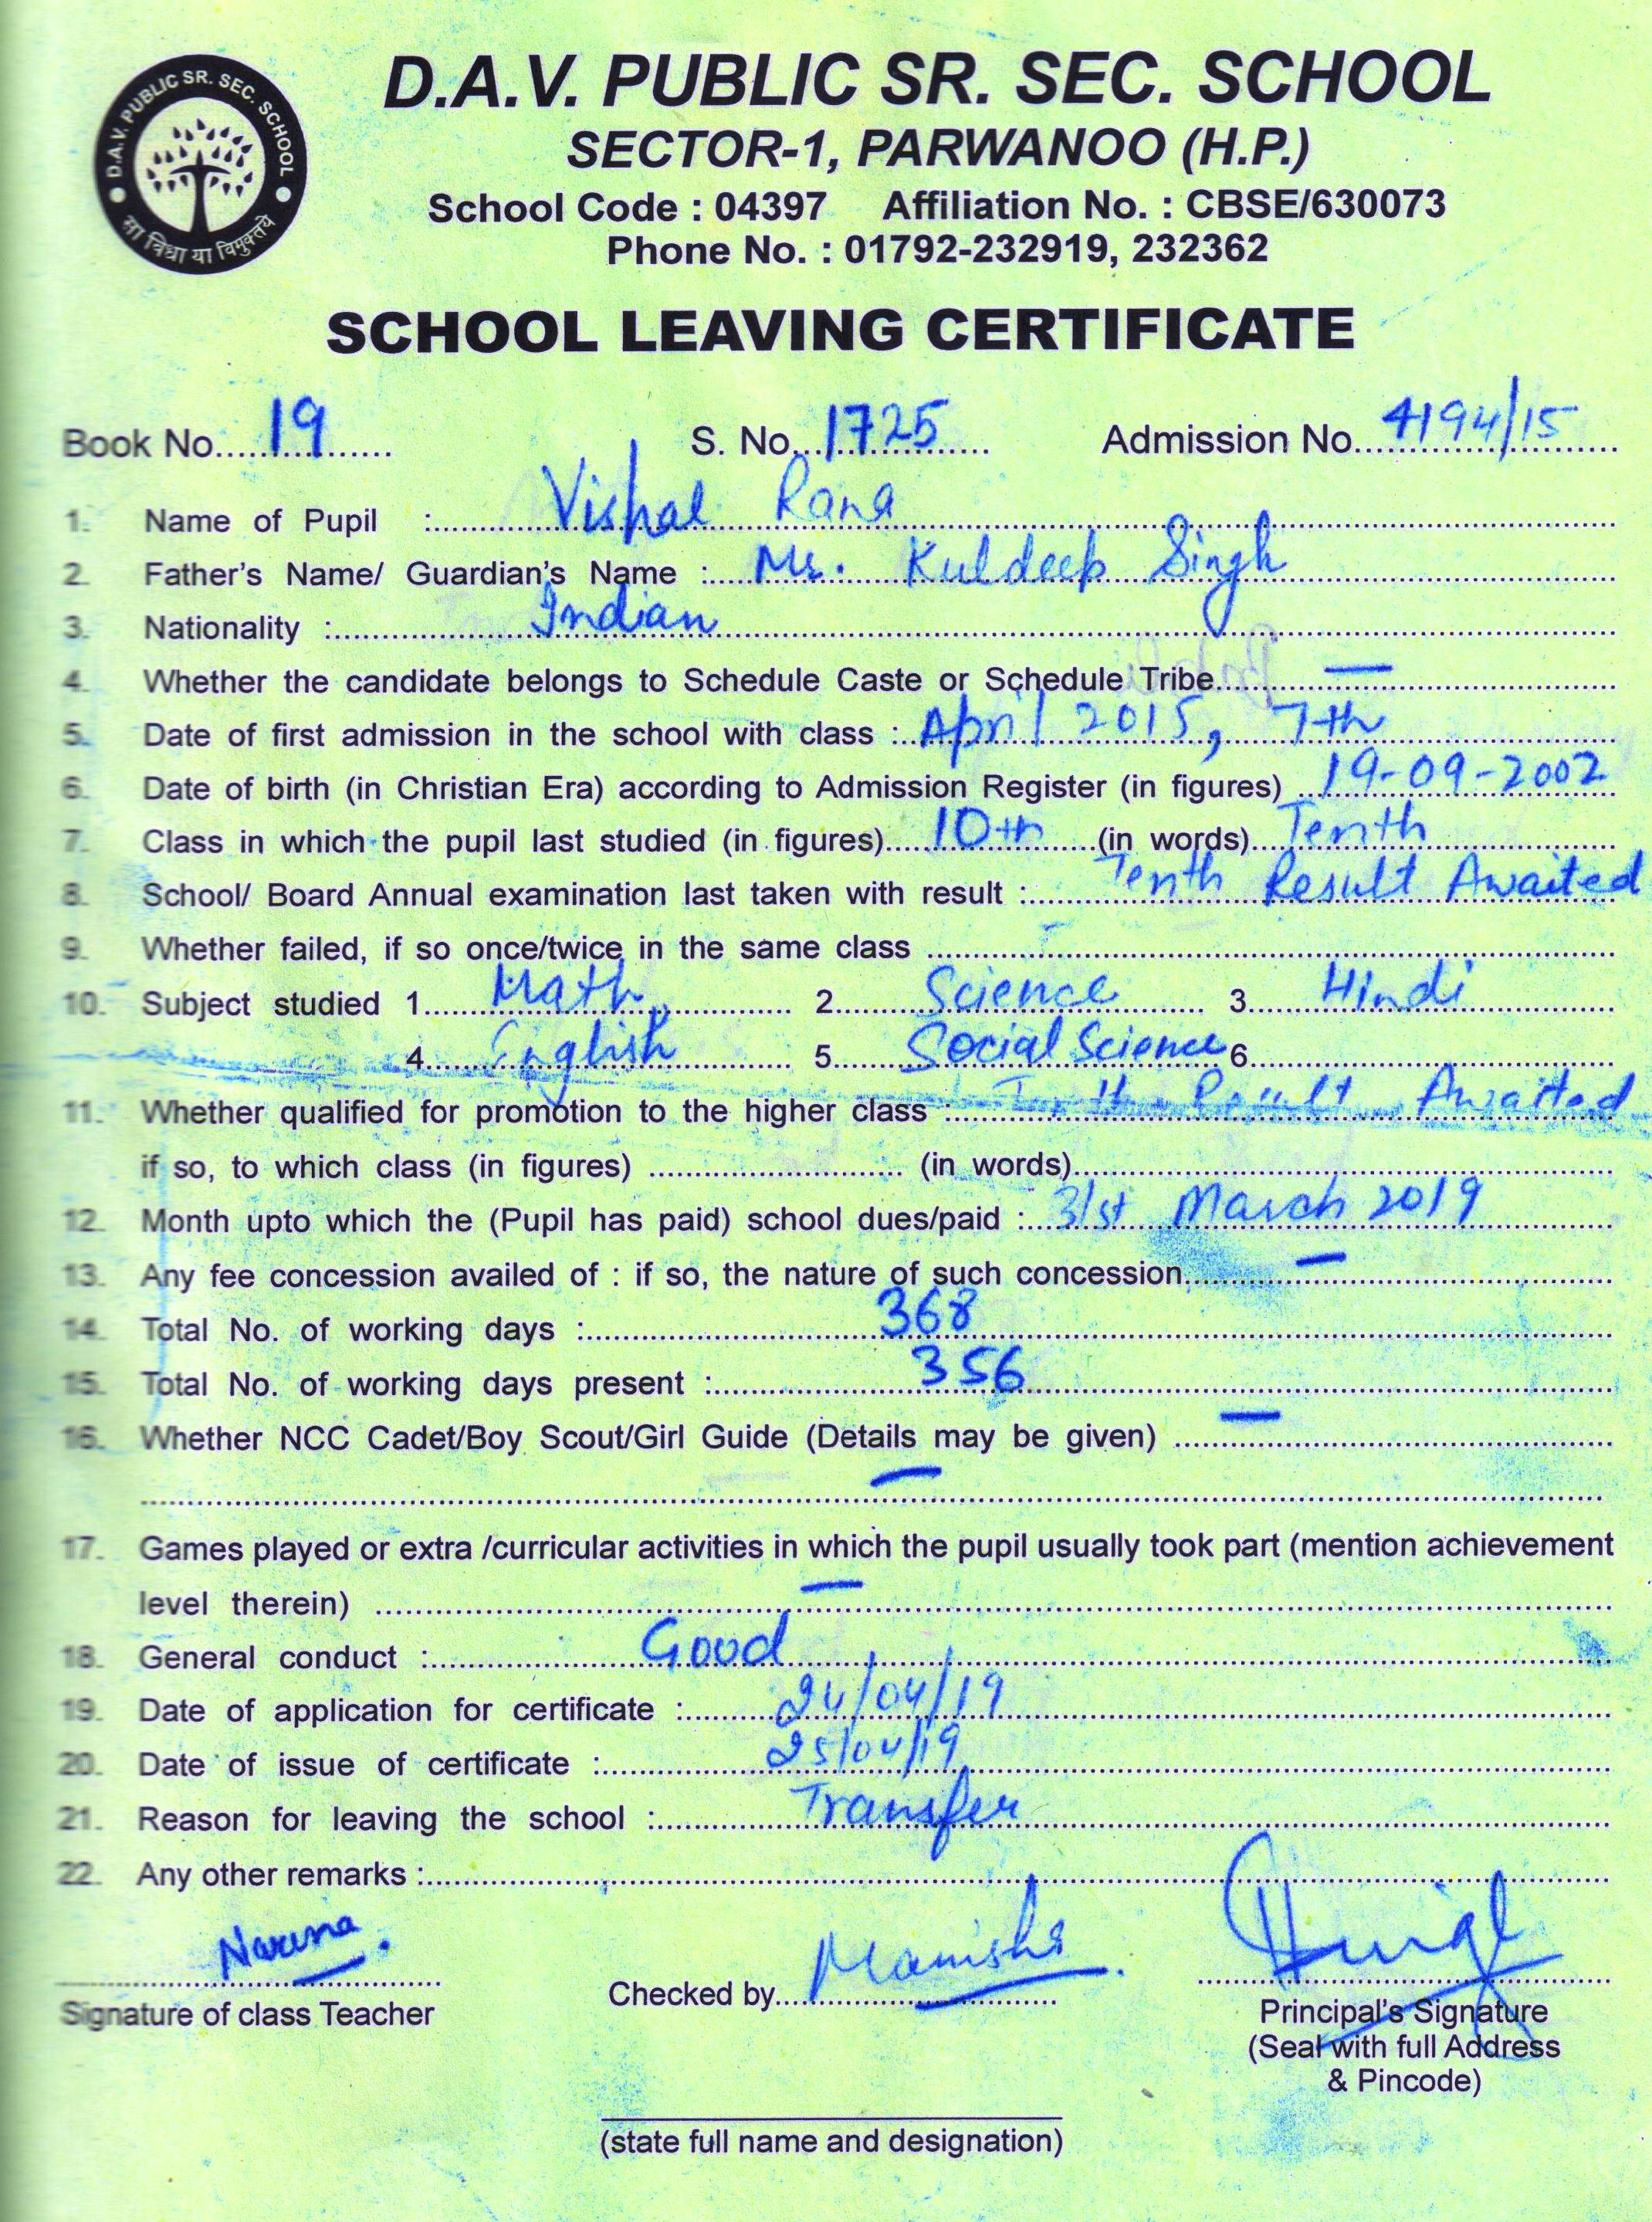 D.A.V. PUBLIC SR. SEC. SCHOOL
सा विद्या या विमुक्तये
D.A.V. PUBLIC SR. SEC. SCHOOL
SECTOR-1, PARWANOO (H.P.)
School Code : 04397 Affiliation No. : CBSE/630073
Phone No. : 01792-232919, 232362
SCHOOL LEAVING CERTIFICATE
Book No. 19 S. No. 1725 Admission No. 4194/15
1. Name of Pupil : Vishal Rana
2. Father's Name/ Guardian's Name : Mr. Kuldeep Singh
3. Nationality : Indian
4. Whether the candidate belongs to Schedule Caste or Schedule Tribe. —
5. Date of first admission in the school with class : April 2015, 7th
6. Date of birth (in Christian Era) according to Admission Register (in figures) 19-09-2002
7. Class in which the pupil last studied (in figures) 10th (in words) Tenth
8. School/ Board Annual examination last taken with result : Tenth Result Awaited
9. Whether failed, if so once/twice in the same class
10. Subject studied 1. Math 2. Science 3. Hindi
4. English 5. Social Science 6.
11. Whether qualified for promotion to the higher class : Tenth Result Awaited
if so, to which class (in figures) (in words)
12. Month upto which the (Pupil has paid) school dues/paid : 31st March 2019
13. Any fee concession availed of : if so, the nature of such concession. —
14. Total No. of working days : 368
15. Total No. of working days present : 356
16. Whether NCC Cadet/Boy Scout/Girl Guide (Details may be given) —
—
17. Games played or extra /curricular activities in which the pupil usually took part (mention achievement
level therein) —
18. General conduct : Good
19. Date of application for certificate : 24/04/19
20. Date of issue of certificate : 25/04/19
21. Reason for leaving the school : Transfer
22. Any other remarks :
Signature of class Teacher
Checked by Manisha
Principal's Signature
(Seal with full Address
& Pincode)
(state full name and designation)